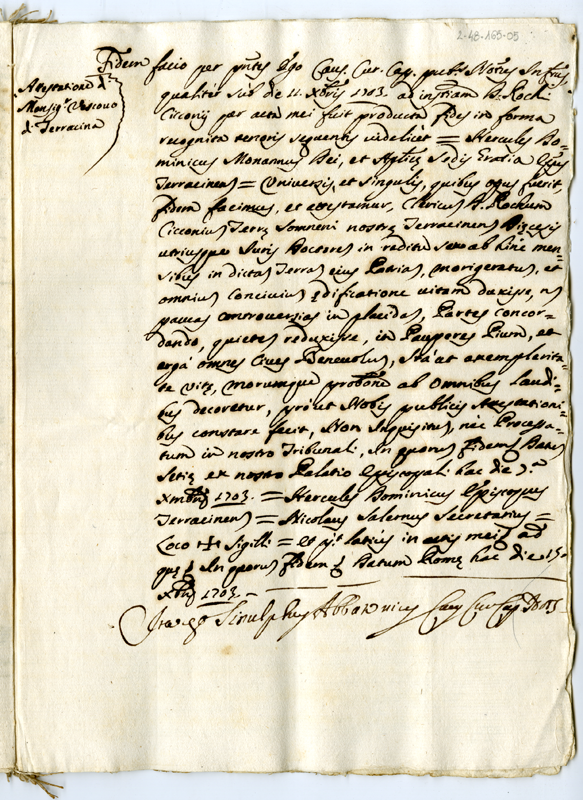 2-48-165-05
Attestatione di
Monsig.r Vescovo
di Terracina
Fidem facio per pñtes Ego Caus. Cur. Cap. pub.s Not.us Infrus
qualiter sub die 11. Xbris 1703. ad instiam D. Rochi
Cicconij per acta mei fuit producta fides in forma
recognita tenoris sequentis videlicet = Hercules Do-
minicus Monannus Dei, et Aplicæ Sedis Gratia Epus
Terracinen = Universis, et singulis, quibus opus fuerit,
fidem facimus, et attestamur, Clericus D. Rochum
Cicconius Terræ Somneni nostræ Terracinen Diæcesis
utriusque Juris Doctores in reditu suo ab hinc men-
sibus in dictas Terras eius Patrias, morigeratus, et
omnius Concivius ędificatione vitam duxisse, ns
paucas controversias in placidas, Partes concor-
dando, quietes reduxisse, in Pauperes Pium, et
ergà omnes Cives Benevolus, Ità at exemplarita-
te vitæ, morumque probõne ab omnibus laudi-
bus decoretur, prout Nobis publicis Attestationi-
bus constare fecit, Non Inquisitus, nec Processa-
tum in nostro Tribunali. In quorum fidem Datum
Setiæ ex nostro Palatio Episcopali hac die
Xmbris 1703. = Hercules Dominicus Episcopus
Terracinen = Nicolaus Salernus Secretarius =
Loco + Sigilli = et pt latius in actis meis ad
quæ In quorum fidem Datum Romæ hac die 15
Xbris 1703. -
Ita est Abbatonius Caus Cur Cap Not.s